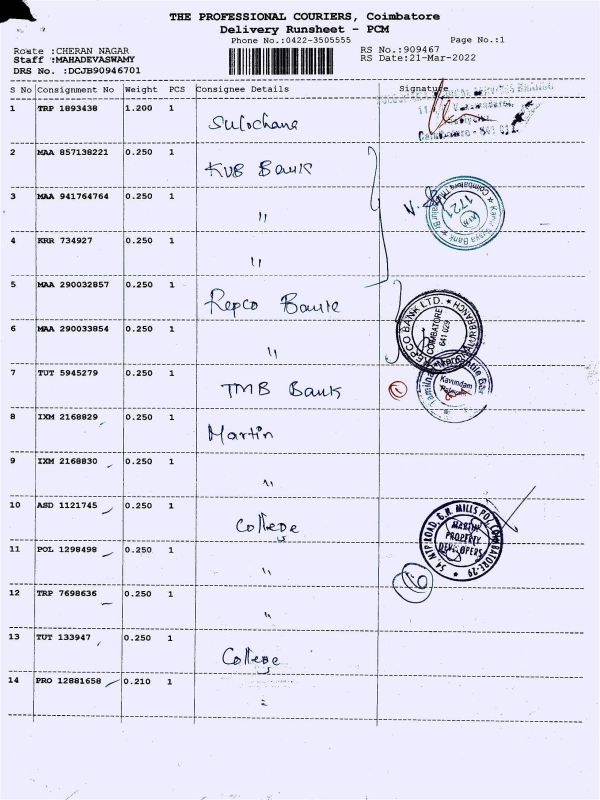 THE PROFESSIONAL COURIERS, Coimbatore
Delivery Runsheet - PCM
Phone No.:0422-3505555 Page No.:1
Route :CHERAN NAGAR RS No.:909467
Staff :MAHADEVASWAMY RS Date:21-Mar-2022
DRS No. :DCJB90946701
S No Consignment No Weight PCS Consignee Details Signature
1 TRP 1893438 1.200 1 Sulochana
2 MAA 857138221 0.250 1 KVB Bank
3 MAA 941764764 0.250 1 "
4 KRR 734927 0.250 1 "
5 MAA 290032857 0.250 1 Repco Bank
6 MAA 290033854 0.250 1 "
7 TUT 5945279 0.250 1 TMB Bank
8 IXM 2168829 0.250 1 Martin
9 IXM 2168830 0.250 1 "
10 ASD 1121745 0.250 1 College
11 POL 1298498 0.250 1 "
12 TRP 7698636 0.250 1 "
13 TUT 133947 0.250 1 College
14 PRO 12881658 0.210 1 "
Coimbatore - 641
1721
REPCO BANK LTD.
COIMBATORE
641 029
Kavundam
54, MTP ROAD, G.N. MILLS PO, COIMBATORE-29
MARTIN
PROPERTY
DEVELOPERS